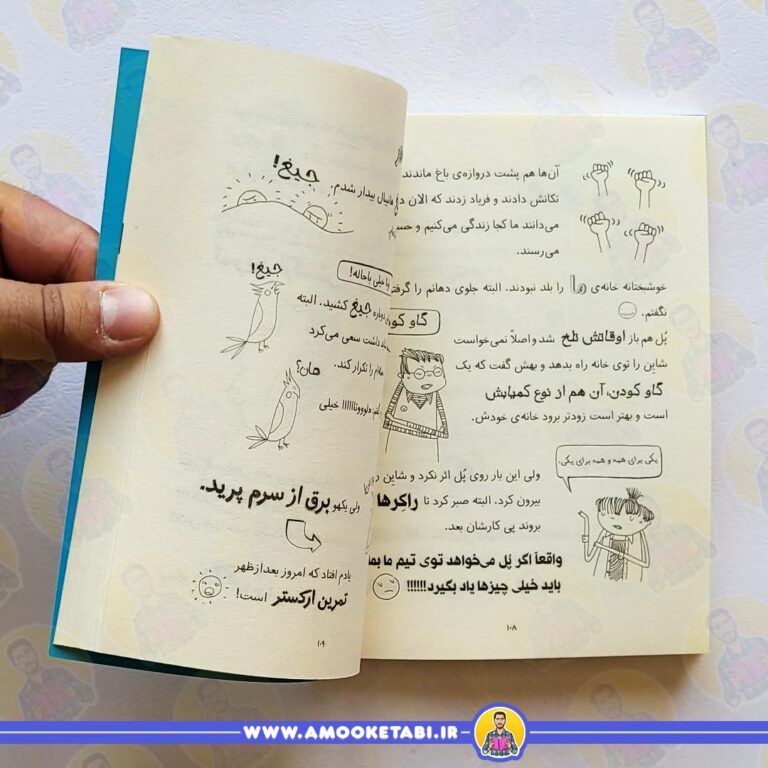 آن‌ها هم پشت دروازه‌ی باغ ماندند
تکانش دادند و فریاد زدند که الان د
می‌دانند ما کجا زندگی می‌کنیم و حس
می‌رسند.
خوشبختانه خانه‌ی ما را بلد نبودند. البته جلوی دهانم را گرفت
نگفتم.
پُل هم باز اوقاتش تلخ شد و اصلاً نمی‌خواست
شاین را توی خانه راه بدهد و بهش گفت که یک
گاو کودن، آن هم از نوع کمیابش
است و بهتر است زودتر برود خانه‌ی خودش.
گاو کود
یکی برای همه و همه برای یکی.
ولی این بار روی پُل اثر نکرد و شاین ر
بیرون کرد. البته صبر کرد تا راکرها
بروند پی کارشان بعد.
واقعاً اگر پُل می‌خواهد توی تیم ما بما
باید خیلی چیزها یاد بگیرد!!!!!!
۱۰۸
جیغ!
دانیال بیدار شدم.
جیغ!
خیلی باحاله!
دوباره جیغ کشید. البته
داشت سعی می‌کرد
را تکرار کند.
هان؟
خیلی
ولی یکهو برق از سرم پرید.
یادم افتاد که امروز بعدازظهر
تمرین ارکستر است!
۱۰۹
WWW.AMOOKETABI.IR